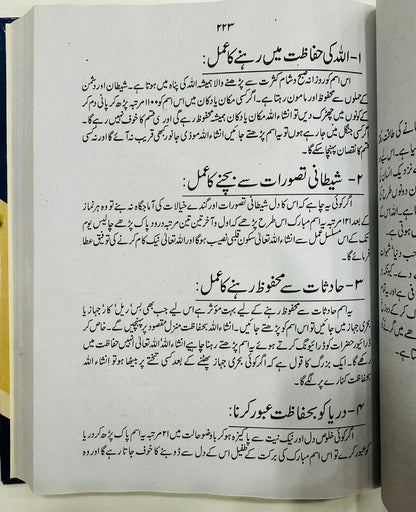 ۲۲۳
۱- اللہ کی حفاظت میں رہنے کا عمل:
اس اسم کو روزانہ صبح و شام کثرت سے پڑھنے والا ہمیشہ اللہ کی پناہ میں ہوتا ہے۔ شیطان اور دشمن
کے حملوں سے محفوظ اور مامون رہتا ہے۔ اگر کسی مکان یا دکان میں اس اسم کو ۱۱۰۰ مرتبہ پڑھ کر پانی دم کر
کے کونوں میں چھڑک دیں تو انشاء اللہ مکان یا دکان ہمیشہ محفوظ رہے گی اور کسی قسم کا خوف نہیں رہے گا۔
اگر کسی جنگل میں جا رہے ہوں تو یہ اسم پڑھتے جائیں انشاء اللہ موذی جانور کبھی قریب نہ آئے گا اور نہ کسی
قسم کا نقصان پہنچا سکے گا۔
۲- شیطانی تصورات سے بچنے کا عمل:
اگر کوئی یہ چاہے کہ اس کا دل شیطانی تصورات اور گندے خیالات کی آماجگاہ نہ بنے تو وہ ہر نماز
کے بعد ۱۲۱ مرتبہ یہ اسم مبارک اس طرح پڑھے کہ اول و آخر تین تین مرتبہ درود پاک پڑھے چالیس یوم
تک کے اس مسلسل عمل سے انشاء اللہ تعالیٰ سکون قلبی نصیب ہوگا اور اللہ تعالیٰ نیک کام کرنے کی توفیق عطا
فرمائے گا۔
۳- حادثات سے محفوظ رہنے کا عمل:
یہ اسم حادثات سے محفوظ رہنے کے لیے بہت مؤثر ہے اس لیے جب بھی بس' ریل' کار' جہاز یا
بحری جہاز میں جائیں تو اس اسم کو پڑھتے جائیں۔ انشاء اللہ بحفاظت منزل مقصود پر پہنچیں گے۔ خاص کر
ڈرائیور حضرات کو ڈرائیونگ کرتے ہوئے یہ اسم پڑھتے رہنا چاہیے انشاء اللہ اللہ تعالیٰ انہیں حفاظت میں
رکھے گا۔ ایک بزرگ کا قول ہے کہ اگر کوئی بحری جہاز پھٹنے کے بعد کسی تختے پر بیٹھا ہو تو انشاء اللہ
بحفاظت کنارے پر لگے گا۔
۴- دریا کو بحفاظت عبور کرنا:
اگر کوئی خلوص دل اور نیک نیت سے پاکیزہ ہو کر باوضو حالت میں ۲۱ مرتبہ یہ اسم پاک پڑھ کر دریا
کو عبور کرے تو اس اسم مبارک کی برکت کے طفیل اس کے دل سے ڈوبنے کا خوف جاتا رہے گا اور وہ